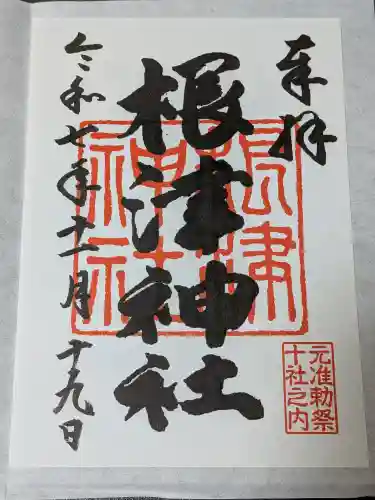 奉拝
根津神社
根津
神社
令和七年十一月十九日
元准勅祭
十社之内